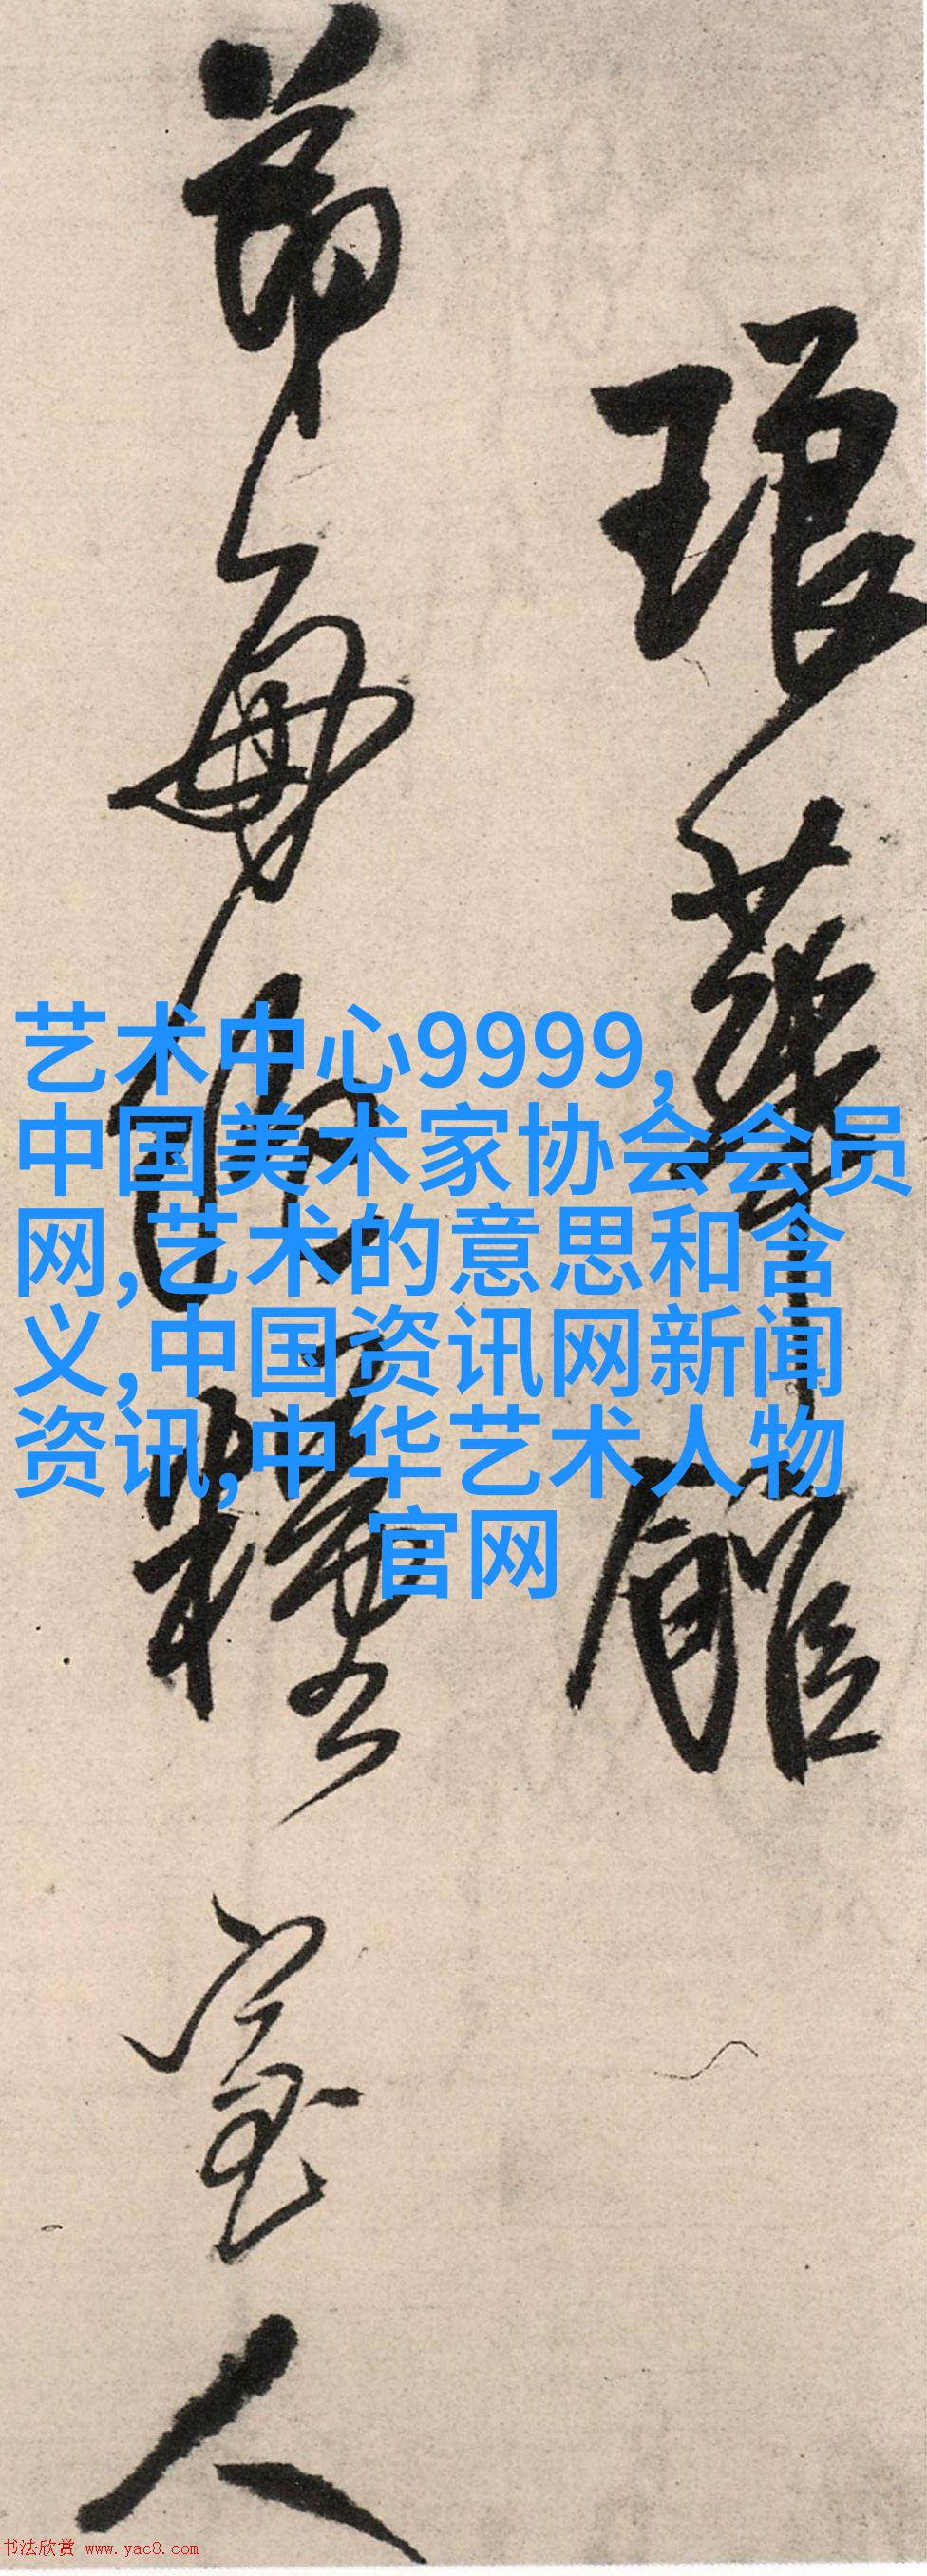 琅華館
艺术中心9999,
中国美术家协会会员
网,艺术的意思和含
义,中国资讯网新闻
资讯,中华艺术人物
官网
人
书法欣赏 www.yac8.com